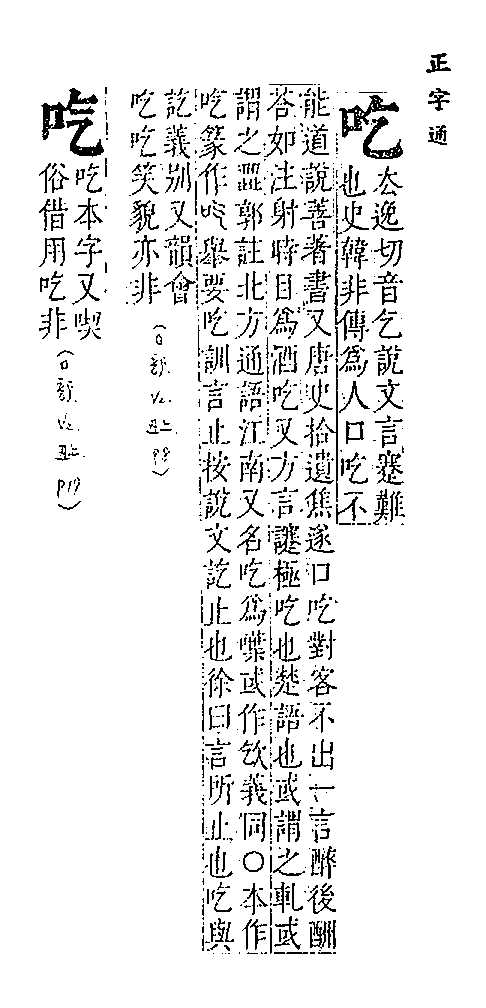 正字通
吃
厺逸切音乞說文言蹇難
也史韓非傳爲人口吃不
能道說善著書又唐史拾遺焦遂口吃對客不出一言醉後酬
荅如注射時目爲酒吃又方言讔極吃也楚語也或謂之軋或
謂之䠟郭註北方通語江南又名吃爲喋或作欥義同○本作
吃篆作吃舉要吃訓言止按說文訖止也徐曰言所止也吃與
訖義别又韻會
吃吃笑貌亦非
(口部. 1/2. 丑上. P8)
吃
吃本字又喫
俗借用吃非
(口部. 1/2. 丑上. P19)